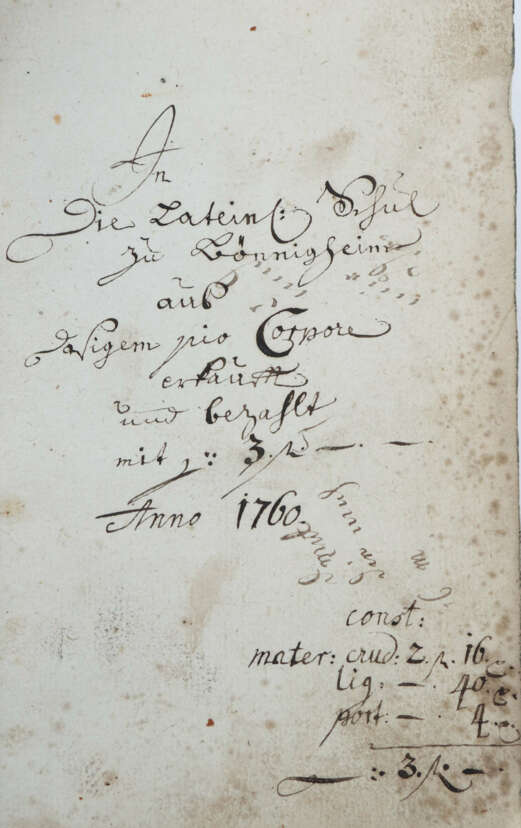 In
Die Latein(: Schul
zu Bönnigheim
auß
dasigem pio Corpore
erkaufft
und bezahlt
mit ,:: 3. f. — . — .
Anno 1760.
const:
mater: crud: 2. f. 16. x.
lig: — . 40. x.
port: — . 4. x.
— :: 3. f. —